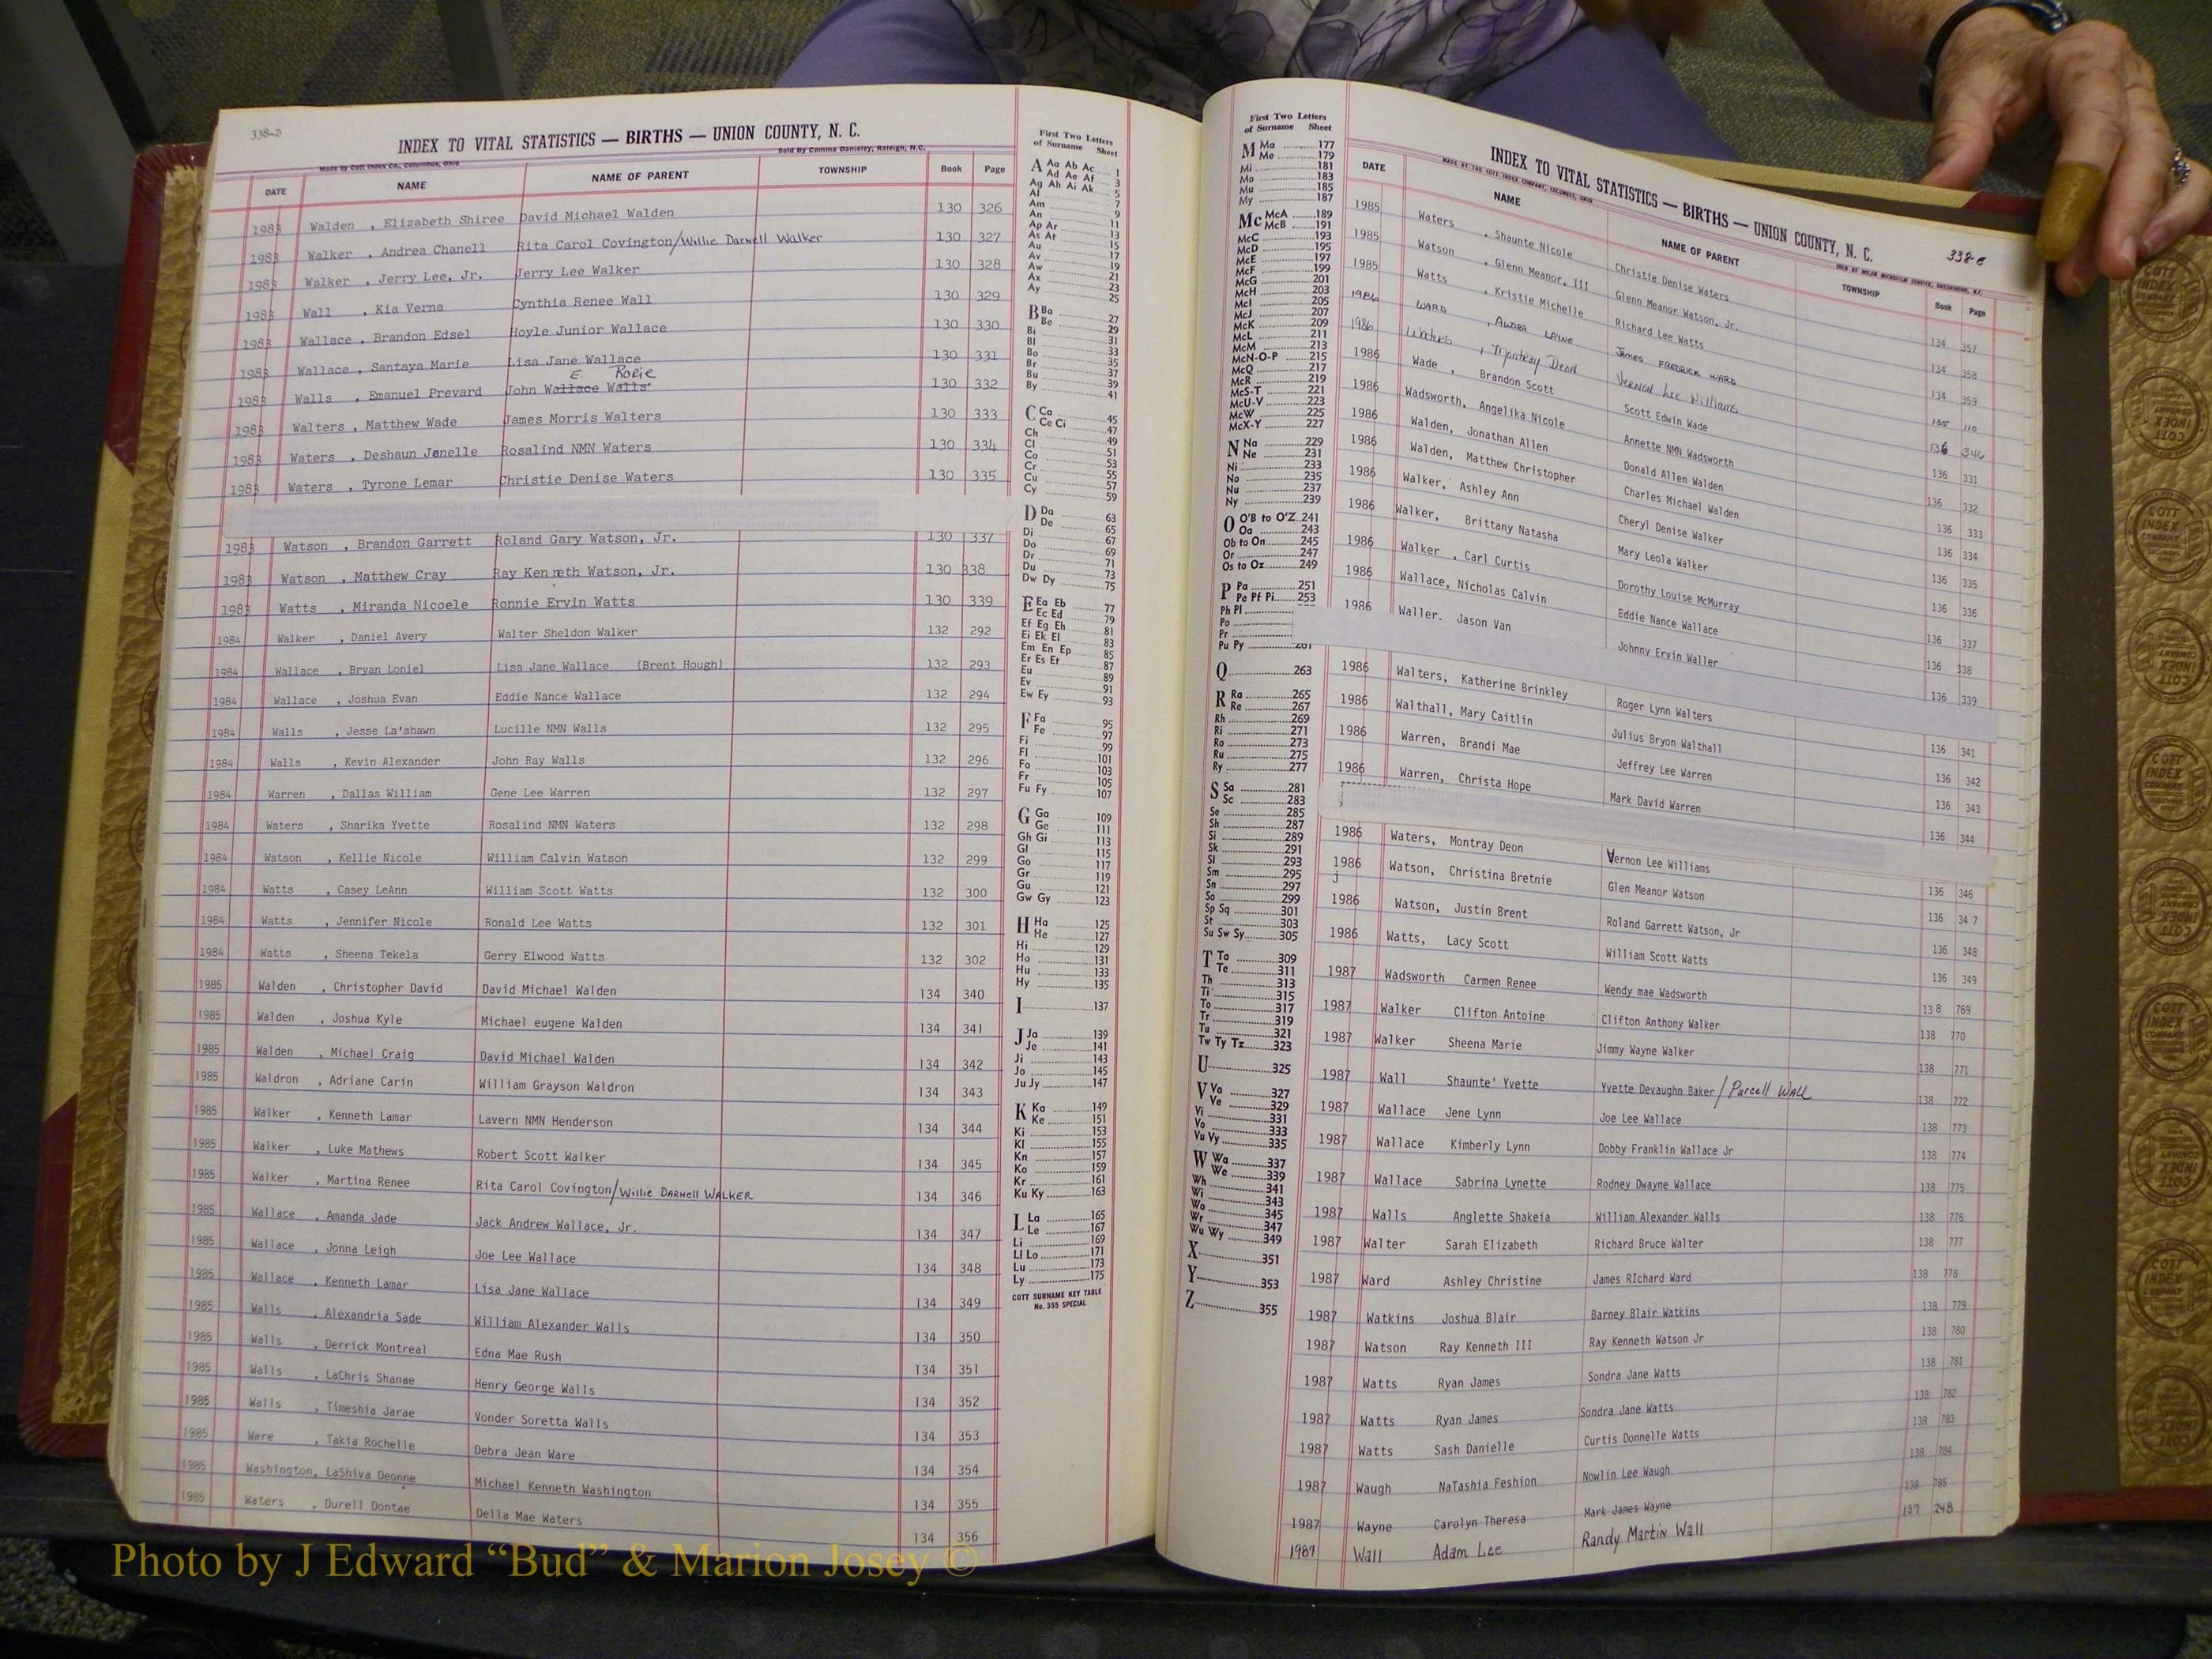 338-D
INDEX TO VITAL STATISTICS — BIRTHS — UNION COUNTY, N. C.
Made by Cott Index Co., Columbus, Ohio
Sold By Comma Danieley, Raleigh, N.C.
DATE NAME NAME OF PARENT TOWNSHIP Book Page
1983 Walden , Elizabeth Shiree David Michael Walden 130 326
1983 Walker , Andrea Chanell Rita Carol Covington/Willie Darnell Walker 130 327
1983 Walker , Jerry Lee, Jr. Jerry Lee Walker 130 328
1983 Wall , Kia Verna Cynthia Renee Wall 130 329
1983 Wallace , Brandon Edsel Hoyle Junior Wallace 130 330
1983 Wallace , Santaya Marie Lisa Jane Wallace 130 331
E. Rorie
1983 Walls , Emanuel Prevard John Wallace Walls 130 332
1983 Walters , Matthew Wade James Morris Walters 130 333
1983 Waters , Deshaun Jenelle Rosalind NMN Waters 130 334
1983 Waters , Tyrone Lemar Christie Denise Waters 130 335
1983 Watson , Brandon Garrett Roland Gary Watson, Jr. 130 337
1983 Watson , Matthew Cray Ray Kenneth Watson, Jr. 130 338
1983 Watts , Miranda Nicoele Ronnie Ervin Watts 130 339
1984 Walker , Daniel Avery Walter Sheldon Walker 132 292
1984 Wallace , Bryan Loniel Lisa Jane Wallace (Brent Hough) 132 293
1984 Wallace , Joshua Evan Eddie Nance Wallace 132 294
1984 Walls , Jesse La'shawn Lucille NMN Walls 132 295
1984 Walls , Kevin Alexander John Ray Walls 132 296
1984 Warren , Dallas William Gene Lee Warren 132 297
1984 Waters , Sharika Yvette Rosalind NMN Waters 132 298
1984 Watson , Kellie Nicole William Calvin Watson 132 299
1984 Watts , Casey LeAnn William Scott Watts 132 300
1984 Watts , Jennifer Nicole Ronald Lee Watts 132 301
1984 Watts , Sheena Tekela Gerry Elwood Watts 132 302
1985 Walden , Christopher David David Michael Walden 134 340
1985 Walden , Joshua Kyle Michael eugene Walden 134 341
1985 Walden , Michael Craig David Michael Walden 134 342
1985 Waldron , Adriane Carin William Grayson Waldron 134 343
1985 Walker , Kenneth Lamar Lavern NMN Henderson 134 344
1985 Walker , Luke Mathews Robert Scott Walker 134 345
1985 Walker , Martina Renee Rita Carol Covington/Willie Darnell WALKER 134 346
1985 Wallace , Amanda Jade Jack Andrew Wallace, Jr. 134 347
1985 Wallace , Jonna Leigh Joe Lee Wallace 134 348
1985 Wallace , Kenneth Lamar Lisa Jane Wallace 134 349
1985 Walls , Alexandria Sade William Alexander Walls 134 350
1985 Walls , Derrick Montreal Edna Mae Rush 134 351
1985 Walls , LaChris Shanae Henry George Walls 134 352
1985 Walls , Timeshia Jarae Vonder Soretta Walls 134 353
1985 Ware , Takia Rochelle Debra Jean Ware 134 354
1985 Washington, LaShiva Deonne Michael Kenneth Washington 134 355
1985 Waters , Durell Dontae Della Mae Waters 134 356
First Two Letters
of Surname Sheet
A Aa Ab Ac 1
Ad Ae Af 3
Ag Ah Ai Ak 5
Al 7
Am 9
An 11
Ap Ar 13
As At 15
Au 17
Av 19
Aw 21
Ax 23
Ay 25
B Ba 27
Be 29
Bi 31
Bl 33
Bo 35
Br 37
Bu 39
By 41
C Ca 45
Ce Ci 47
Ch 49
Cl 51
Co 53
Cr 55
Cu 57
Cy 59
D Da 63
De 65
Di 67
Do 69
Dr 71
Du 73
Dw Dy 75
E Ea Eb 77
Ec Ed 79
Ef Eg Eh 81
Ei Ek El 83
Em En Ep 85
Er Es Et 87
Eu 89
Ev 91
Ew Ey 93
F Fa 95
Fe 97
Fi 99
Fl 101
Fo 103
Fr 105
Fu Fy 107
G Ga 109
Ge 111
Gh Gi 113
Gl 115
Go 117
Gr 119
Gu 121
Gw Gy 123
H Ha 125
He 127
Hi 129
Ho 131
Hu 133
Hy 135
I 137
J Ja 139
Je 141
Ji 143
Jo 145
Ju Jy 147
K Ka 149
Ke 151
Ki 153
Kl 155
Kn 157
Ko 159
Kr 161
Ku Ky 163
L La 165
Le 167
Li 169
Ll Lo 171
Lu 173
Ly 175
COTT SURNAME KEY TABLE
No. 355 SPECIAL
First Two Letters
of Surname Sheet
M Ma 177
Me 179
Mi 181
Mo 183
Mu 185
My 187
Mc McA 189
McB 191
McC 193
McD 195
McE 197
McF 199
McG 201
McH 203
McI 205
McJ 207
McK 209
McL 211
McM 213
McN-O-P 215
McQ 217
McR 219
McS-T 221
McU-V 223
McW 225
McX-Y 227
N Na 229
Ne 231
Ni 233
No 235
Nu 237
Ny 239
O O'B to O'Z 241
Oa 243
Ob to On 245
Or 247
Os to Oz 249
P Pa 251
Pe Pf Pi 253
Ph Pl
Po
Pr
Pu Py 261
Q 263
R Ra 265
Re 267
Rh 269
Ri 271
Ro 273
Ru 275
Ry 277
S Sa 281
Sc 283
Se 285
Sh 287
Si 289
Sk 291
Sl 293
Sm 295
Sn 297
So 299
Sp Sq 301
St 303
Su Sw Sy 305
T Ta 309
Te 311
Th 313
Ti 315
To 317
Tr 319
Tu 321
Tw Ty Tz 323
U 325
V Va 327
Ve 329
Vi 331
Vo 333
Vu Vy 335
W Wa 337
We 339
Wh 341
Wi 343
Wo 345
Wr 347
Wu Wy 349
X 351
Y 353
Z 355
INDEX TO VITAL STATISTICS — BIRTHS — UNION COUNTY, N. C.
338-e
MADE BY THE COTT INDEX COMPANY, COLUMBUS, OHIO
DATE NAME NAME OF PARENT TOWNSHIP Book Page
1985 Waters , Shaunte Nicole Christie Denise Waters 134 357
1985 Watson , Glenn Meanor, III Glenn Meanor Watson, Jr. 134 358
1985 Watts , Kristie Michelle Richard Lee Watts 134 359
1986 WARD , James FREDRICK WARD 135 110
1986 Waters , Montray Deon Vernon Lee Williams 136 346
1986 Wade , Brandon Scott Scott Edwin Wade 136 331
1986 Wadsworth, Angelika Nicole Annette NMN Wadsworth 136 332
1986 Walden, Jonathan Allen Donald Allen Walden 136 333
1986 Walden, Matthew Christopher Charles Michael Walden 136 334
1986 Walker, Ashley Ann Cheryl Denise Walker 136 335
1986 Walker, Brittany Natasha Mary Leola Walker 136 336
1986 Walker , Carl Curtis Dorothy Louise McMurray 136 337
1986 Wallace, Nicholas Calvin Eddie Nance Wallace 136 338
1986 Waller. Jason Van Johnny Ervin Waller 136 339
1986 Walters, Katherine Brinkley Roger Lynn Walters 136 341
1986 Walthall, Mary Caitlin Julius Bryon Walthall 136 342
1986 Warren, Brandi Mae Jeffrey Lee Warren 136 343
1986 Warren, Christa Hope Mark David Warren 136 344
1986 Waters, Montray Deon Vernon Lee Williams 136 346
1986 Watson, Christina Bretnie Glen Meanor Watson 136 34 7
j
1986 Watson, Justin Brent Roland Garrett Watson, Jr 136 348
1986 Watts, Lacy Scott William Scott Watts 136 349
1987 Wadsworth Carmen Renee Wendy mae Wadsworth 138 769
1987 Walker Clifton Antoine Clifton Anthony Walker 138 770
1987 Walker Sheena Marie Jimmy Wayne Walker 138 771
1987 Wall Shaunte' Yvette Yvette Devaughn Baker / Purcell WALL 138 772
1987 Wallace Jene Lynn Joe Lee Wallace 138 773
1987 Wallace Kimberly Lynn Dobby Franklin Wallace Jr 138 774
1987 Wallace Sabrina Lynette Rodney Dwayne Wallace 138 775
1987 Walls Anglette Shakeia William Alexander Walls 138 776
1987 Walter Sarah Elizabeth Richard Bruce Walter 138 777
1987 Ward Ashley Christine James RIchard Ward 138 778
1987 Watkins Joshua Blair Barney Blair Watkins 138 779
1987 Watson Ray Kenneth III Ray Kenneth Watson Jr 138 780
1987 Watts Ryan James Sondra Jane Watts 138 781
1987 Watts Ryan James Sondra Jane Watts 138 782
1987 Watts Sash Danielle Curtis Donnelle Watts 138 783
1987 Waugh NaTashia Feshion Nowlin Lee Waugh 138 784
1987 Wayne Carolyn Theresa Mark James Wayne 138 785
1987 Wall Adam Lee Randy Martin Wall 137 248
COTT INDEX COMPANY
Photo by J Edward “Bud” & Marion Josey ©